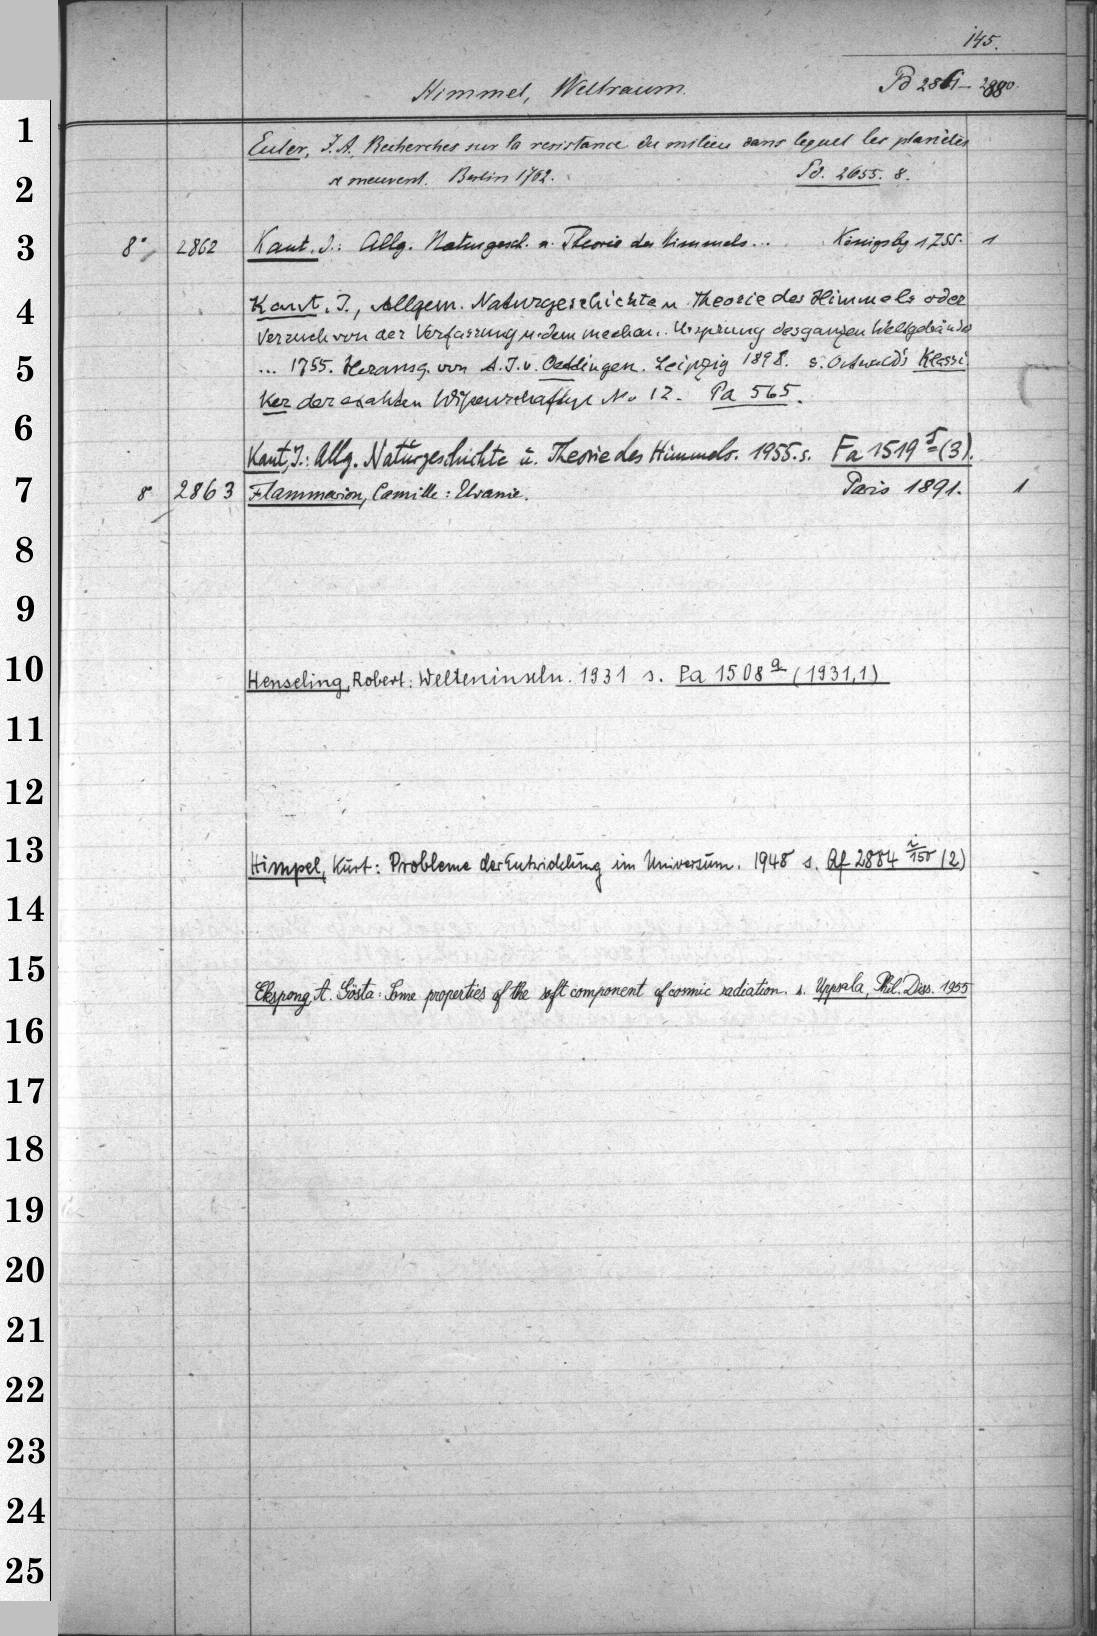 145.
Himmel, Weltraum. Pd 2861-2880.
1
Euler, J. A. Recherches sur la resistance du milieu dans lequel les planètes
2
se meuvent. Berlin 1762. Pd. 2655. 8.
3
8° 2862 Kant. J.: Allg. Naturgesch. u. Theorie des Himmels... Königsbg 1755. 1
4
Kant. J., Allgem. Naturgeschichte u. Theorie des Himmels oder
Versuch von der Verfassung u. dem mechan. Ursprung des ganzen Weltgebäudes
5
... 1755. Herausg. von A. J. v. Oettingen. Leipzig 1898. s. Ostwald's Klassi
ker der exakten Wissenschaften No 12. Pa 565.
6
Kant, J.: Allg. Naturgeschichte u. Theorie des Himmels. 1955. s. Fa 1519 (3).
7
8 2863 Flammarion, Camille: Uranie. Paris 1891. 1
8
9
10
Henseling, Robert: Welteninseln. 1931 s. Pa 1508 a (1931,1)
11
12
13
Himpel, Kurt: Probleme der Entwicklung im Universum. 1948 s. Qf 2884 r/150 (2)
14
15
Ekspong, A. Gösta: Some properties of the soft component of cosmic radiation. s. Uppsala, Phil. Diss. 1955
16
17
18
19
20
21
22
23
24
25